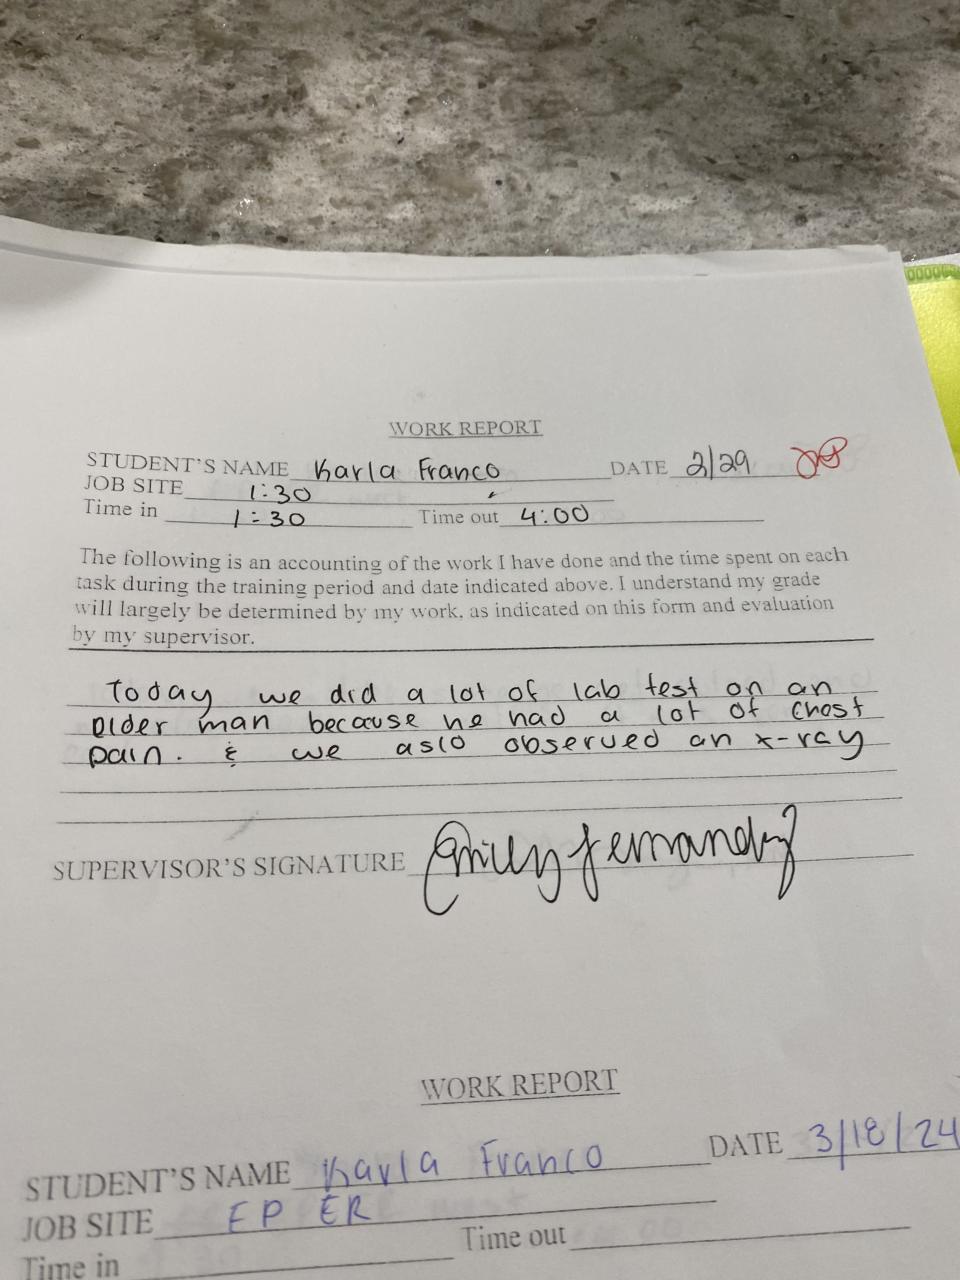 WORK REPORT
STUDENT'S NAME Karla Franco DATE 2/29
JOB SITE 1:30
Time in 1:30 Time out 4:00
The following is an accounting of the work I have done and the time spent on each
task during the training period and date indicated above. I understand my grade
will largely be determined by my work, as indicated on this form and evaluation
by my supervisor.
Today we did a lot of lab test on an
older man because he had a lot of chest
pain. & we aslo observed an x-ray
SUPERVISOR'S SIGNATURE Emily Fernandez
WORK REPORT
STUDENT'S NAME Karla Franco DATE 3/18/24
JOB SITE EP ER
Time in Time out